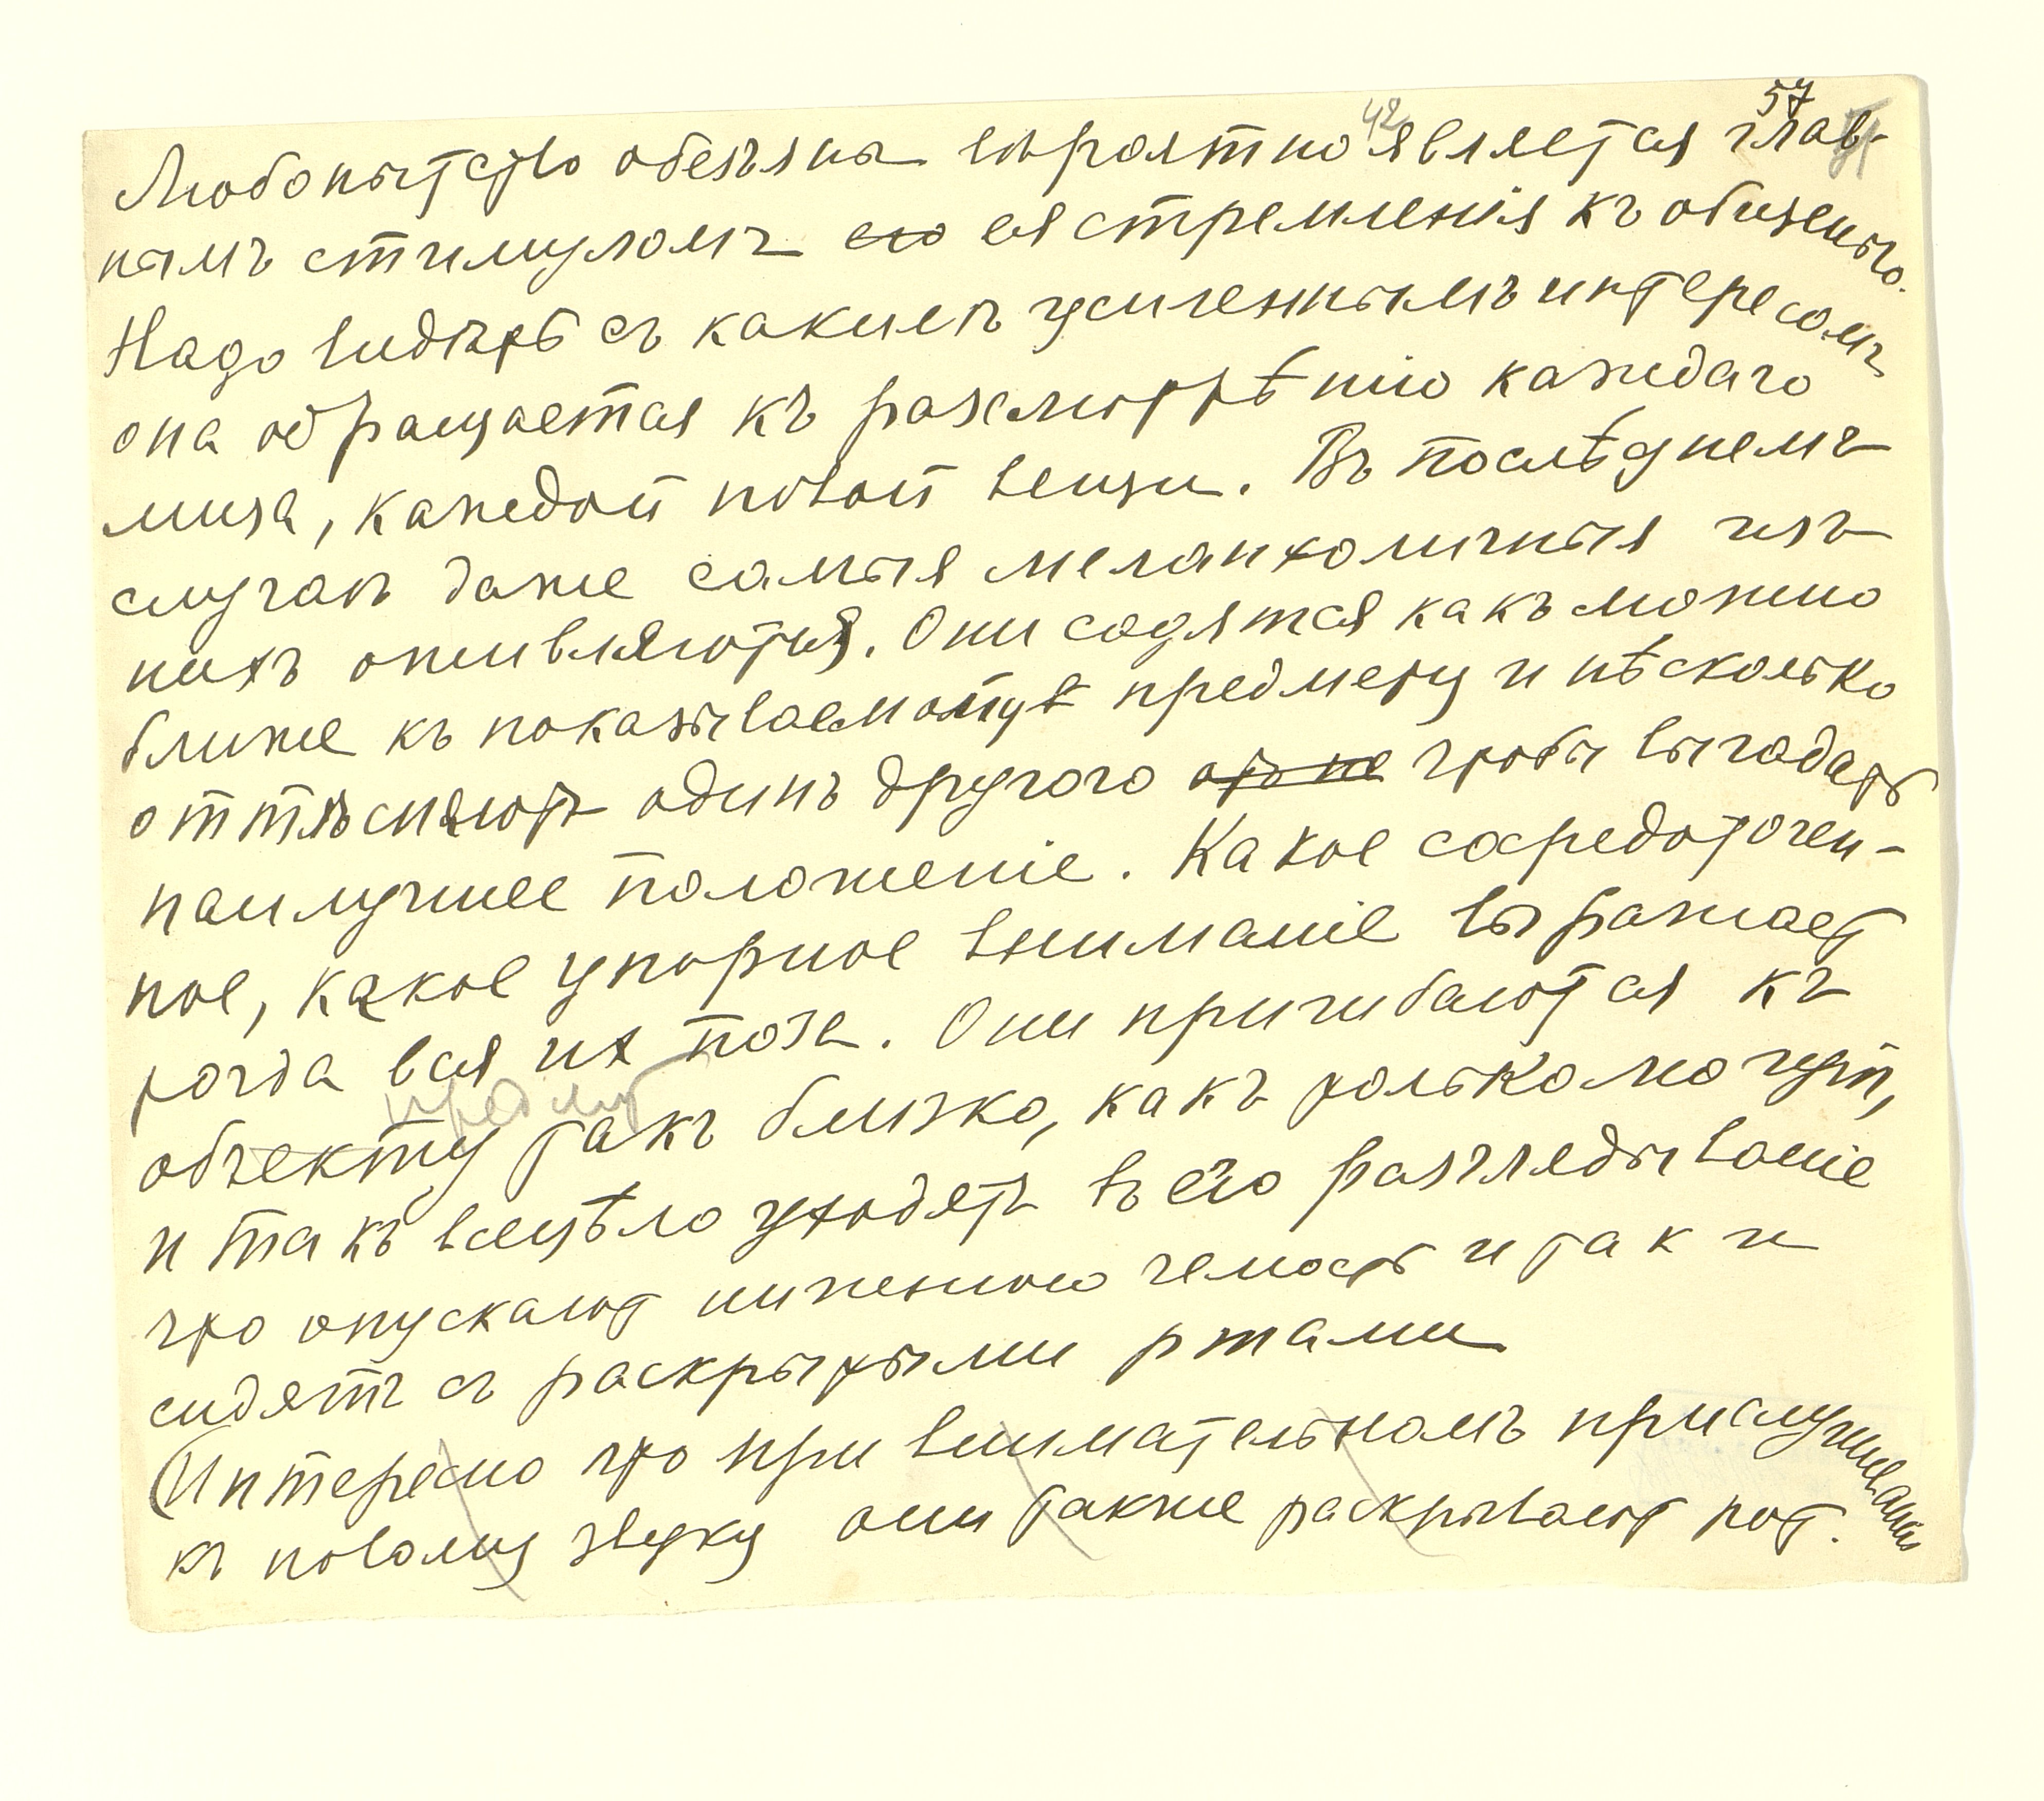 42 57
Любопытство обезьяны вѣроятно является глав-
нымъ стимуломъ его ея стремленія къ общенію.
Надо видѣть съ какимъ усиленнымъ интересомъ
она обращается къ разсмотрѣнію каждаго
лица, каждой новой вещи. Въ послѣднемъ
случаѣ даже самыя меланхоличныя изъ
нихъ оживляются. Они садятся какъ можно
ближе къ показываемому предмету и нѣсколько
оттѣсняютъ одинъ другого чтобы выгадать
наилучшее положеніе. Какое сосредоточен-
ное, какое упорное вниманіе выражает
тогда вся их поза. Они пригибаются къ
предмету
объекту такъ близко, какъ только могутъ,
и такъ всецѣло уходятъ въ его разглядываніе
что опускают нижнюю челюсть и так и
сидятъ съ раскрытыми ртами
(Интересно что при внимательномъ прислушиваніи
къ новому звуку они также раскрывают рот.